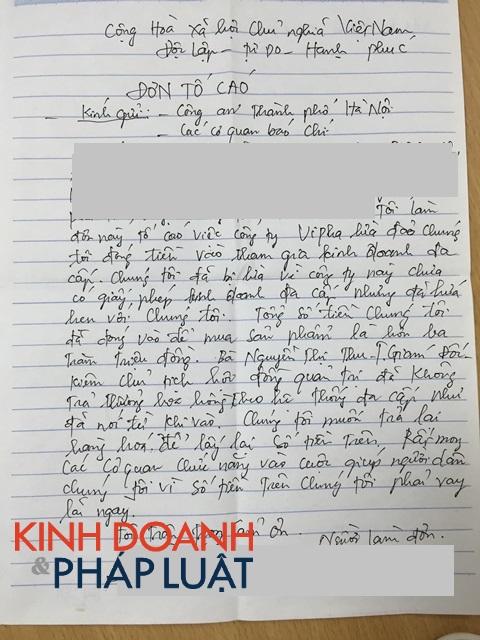 Cộng Hoà Xã hội Chủ nghĩa Việt Nam
Độc lập - Tự Do - Hạnh phúc
ĐƠN TỐ CÁO
- Kính gửi: - Công an Thành phố Hà Nội
- Các cơ quan báo chí
Tôi làm
đơn này tố cáo việc công ty Vipha lừa đảo chúng
tôi đóng tiền vào tham gia kinh doanh đa
cấp. Chúng tôi đã bị lừa vì công ty này chưa
có giấy phép kinh doanh đa cấp nhưng đã hứa
hẹn với chúng tôi. Tổng số tiền chúng tôi
đã đóng vào để mua sản phẩm là hơn ba
trăm triệu đồng. Bà Nguyễn Thị Thu - T. Giám Đốc
kiêm chủ tịch hội đồng quản trị đã không
trả thưởng hoa hồng theo hệ thống đa cấp như
đã nói từ khi vào. Chúng tôi muốn trả lại
hàng hoá để lấy lại số tiền trên. Rất mong
các cơ quan chức năng vào cuộc giúp người dân
chúng tôi vì số tiền trên chúng tôi phải vay
lãi ngay.
Tôi trân trọng cảm ơn. Người làm đơn.
KINH DOANH
& PHÁP LUẬT